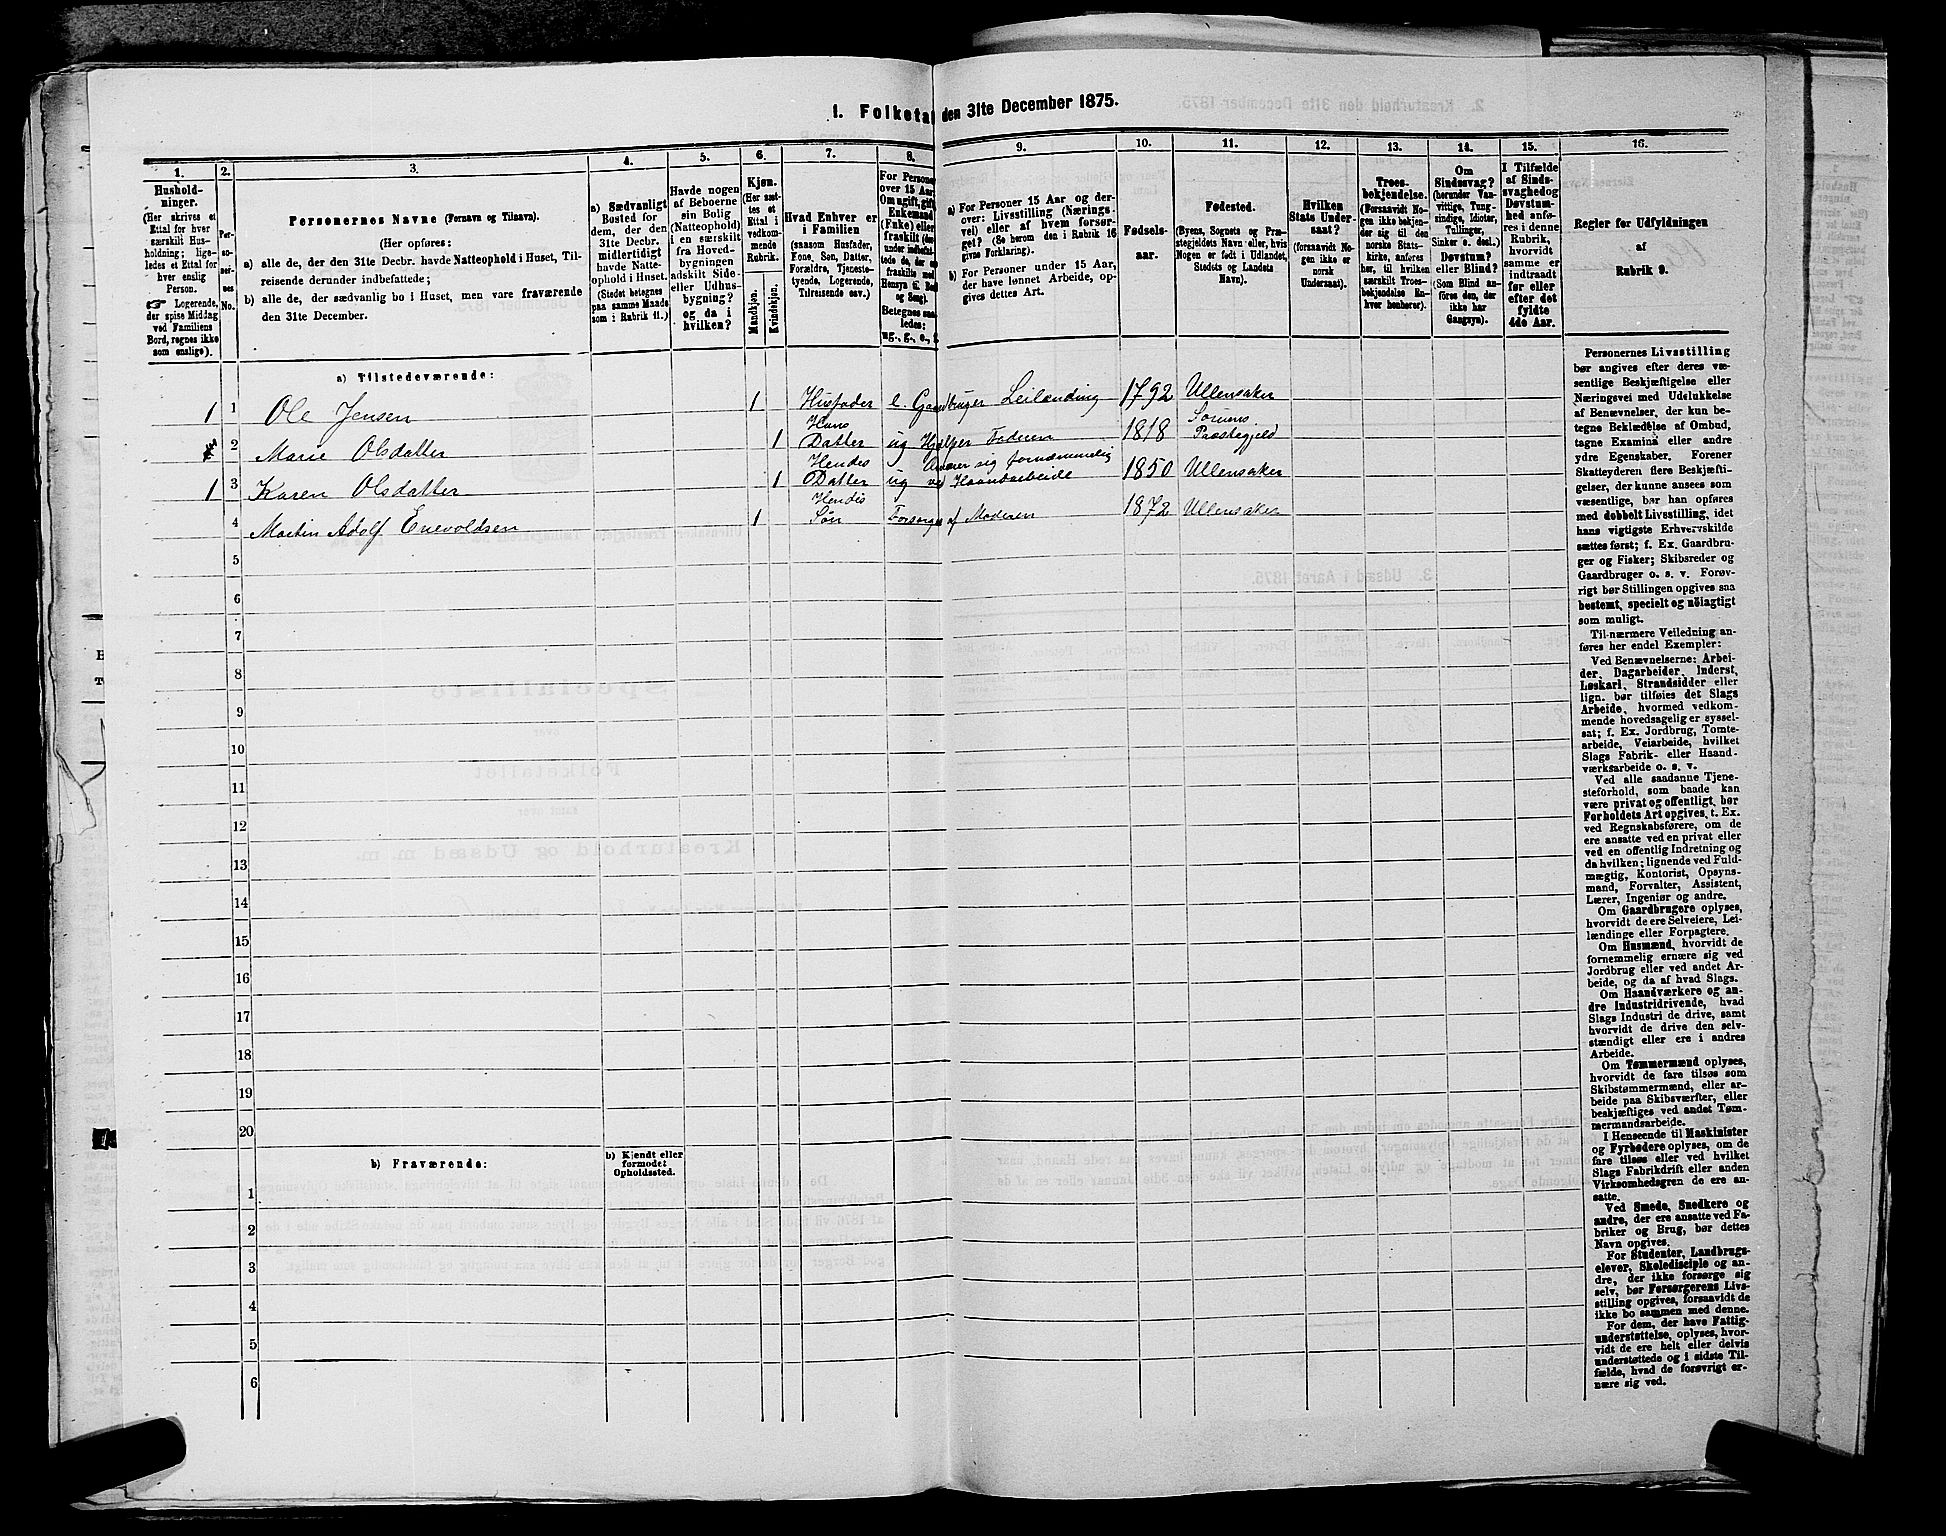 1. Folketal den 31te December 1875.
1.
2.
3.
4.
5.
6.
7.
8.
9.
10.
11.
12.
13.
14.
15.
16.
Hushold-
ninger.
(Her skrives et
Ettal for hver
særskilt Hus-
holdning; lige-
ledes et Ettal for
hver enslig
Person.
☞ Logerende,
der spise Middag
ved Familiens
Bord, regnes ikke
som enslige).
Per-
so-
ner-
nes
No.
Personernes Navne (Fornavn og Tilnavn).
(Her opføres:
a) alle de, der den 31te Decbr. havde Natteophold i Huset, Til-
reisende derunder indbefattede;
b) alle de, der sædvanlig bo i Huset, men vare fraværende
den 31te December.
a) Sædvanligt
Bosted for
dem, der den
31te Decbr.
midlertidigt
havde Natte-
ophold i Huset.
(Stedet betegnes
paa samme Maade
som i Rubrik 11.)
Havde nogen
af Beboerne
sin Bolig
(Natteophold)
i en særskilt
fra Hoved-
bygningen
adskilt Side-
eller Udhus-
bygning?
og da i
hvilken?
Kjøn.
(Her sæt-
tes et
Ettal i
vedkom-
mende
Rubrik.
Mandkjøn.
Kvindekjøn.
Hvad Enhver er
i Familien
(saasom Husfader,
Kone, Søn, Datter,
Forældre, Tjeneste-
tyende, Logerende,
Tilreisende osv.)
For Personer
over 15 Aar:
Om ugift, gift,
Enkemand
(Enke) eller
fraskilt
Betegnes saa-
ledes:
ug., g., e.,
a) For Personer 15 Aar og der-
over: Livsstilling (Nærings-
vei) eller af hvem forsør-
get? (Se herom den i Rubrik 16
givne Forklaring).
b) For Personer under 15 Aar,
der have lønnet Arbeide, op-
gives dettes Art.
Fødsels-
aar.
Fødested.
(Byens, Sognets og Præ-
stegjeldets Navn eller, hvis
Nogen er født i Udlandet,
Stedets og Landets
Navn).
Hvilken
Stats Under-
saat?
(forsaavidt No-
gen ikke er
norsk
Undersaat).
Troes-
bekjendelse.
(Forsaavidt No-
gen ikke bekjen-
der sig til den
norske Stats-
kirke, anføres
her, til hvilken
særskilt Troes-
bekjendelse En-
hver henhører).
Om
Sindssvag?
(herunder Van-
vittige, Tung-
sindige, Idioter,
Tullinger,
Sinker o. desl.)
Døvstum?
eller Blind?
(Som Blind an-
føres den, der
ikke har
Gangsyn).
I Tilfælde
af Sinds-
svaghed og
Døvstum-
hed anfø-
res i denne
Rubrik,
hvorvidt
samme er
indtraadt
før eller
efter det
fyldte
4de Aar.
Regler for Udfyldningen
af
Rubrik 9.
a) Tilstedeværende:
1 1 Ole Jensen 1 Husfader e. Gaardbruger Leilænding 1792 Ullensaker
2 Marie Olsdatter 1 Hans Datter ug Hjelper Faderen 1818 Sørums Præstegjeld
1 3 Karen Olsdatter 1 Hendes Datter ug Ernærer sig fornæmmelig ved Haandarbeide 1850 Ullensaker
4 Martin Adolf Enevoldsen 1 Hendes Søn Forsørges af Moderen 1872 Ullensaker
5
6
7
8
9
10
11
12
13
14
15
16
17
18
19
20
b) Fraværende:
b) Kjendt eller
formodet
Opholdssted.
1
2
3
4
5
6
Personernes Livsstilling
bør angives efter deres væ-
sentlige Beskjæftigelse eller
Næringsvei med Udelukkelse
af Benævnelser, der kun be-
tegne Beklædelse af Ombud,
tagne Examina eller andre
ydre Egenskaber. Forener
Skatteyderen flere Beskjæfti-
gelser, der kunne ansees som
væsentlige, bør han opføres
med dobbelt Livsstilling, idet
hans vigtigste Erhvervskilde
sættes først; f. Ex. Gaardbru-
ger og Fisker; Skibsreder og
Gaardbruger o. s. v. Forøv-
rigt bør Stillingen opgives saa
bestemt, specielt og nøiagtigt
som muligt.
Til nærmere Veiledning an-
føres her endel Exempler:
Ved Benævnelserne: Arbei-
der, Dagarbeider, Inderst,
Løskarl, Strandsidder eller
lign. bør tilføies det Slags
Arbeide, hvormed vedkom-
mende hovedsagelig er syssel-
sat; f. Ex. Jordbrug, Tomte-
arbeide, Veiarbeide, hvilket
Slags Fabrik- eller Haand-
værksarbeide o. s. v.
Ved alle saadanne Tjene-
steforhold, som baade kan
være privat og offentligt, bør
Forholdets Art opgives, t. Ex.
ved Regnskabsførere, om de
ere ansatte ved en privat eller
ved en offentlig Indretning og
da hvilken; lignende ved Fuld-
mægtig, Kontorist, Opsyns-
mand, Forvalter, Assistent,
Lærer, Ingeniør og andre.
Om Gaardbrugere oplyses,
hvorvidt de ere Selveiere, Lei-
lændinge eller Forpagtere.
Om Husmænd, hvorvidt de
fornemmelig ernære sig ved
Jordbrug eller ved andet Ar-
beide, og da af hvad Slags.
Om Haandværkere og an-
dre Industridrivende, hvad
Slags Industri de drive, samt
hvorvidt de drive den selv-
stændigt eller ere i andres
Arbeide.
Om Tømmermænd oplyses,
hvorvidt de fare tilsøs som
Skibstømmermænd, eller ar-
beide paa Skibsværfter, eller
beskjæftiges ved andet Tøm-
mermandsarbeide.
I Henseende til Maskinister
og Fyrbødere oplyses, om de
fare tilsøs eller ved hvilket
Slags Fabrikdrift eller anden
Virksomhedsgren de ere an-
satte.
Ved Smede, Snedkere og
andre, der ere ansatte ved Fa-
briker og Brug, bør dettes
Navn opgives.
For Studenter, Landbrugs-
elever, Skoledisciple og an-
dre, der ikke forsørge sig
selv, bør Forsørgerens Livs-
stilling opgives, forsaavidt de
ikke bo sammen med denne.
For dem, der have Fattig-
understøttelse, oplyses, hvor-
vidt de ere helt eller delvis
understøttede og i sidste Til-
fælde, hvad de forøvrigt er-
nære sig ved.